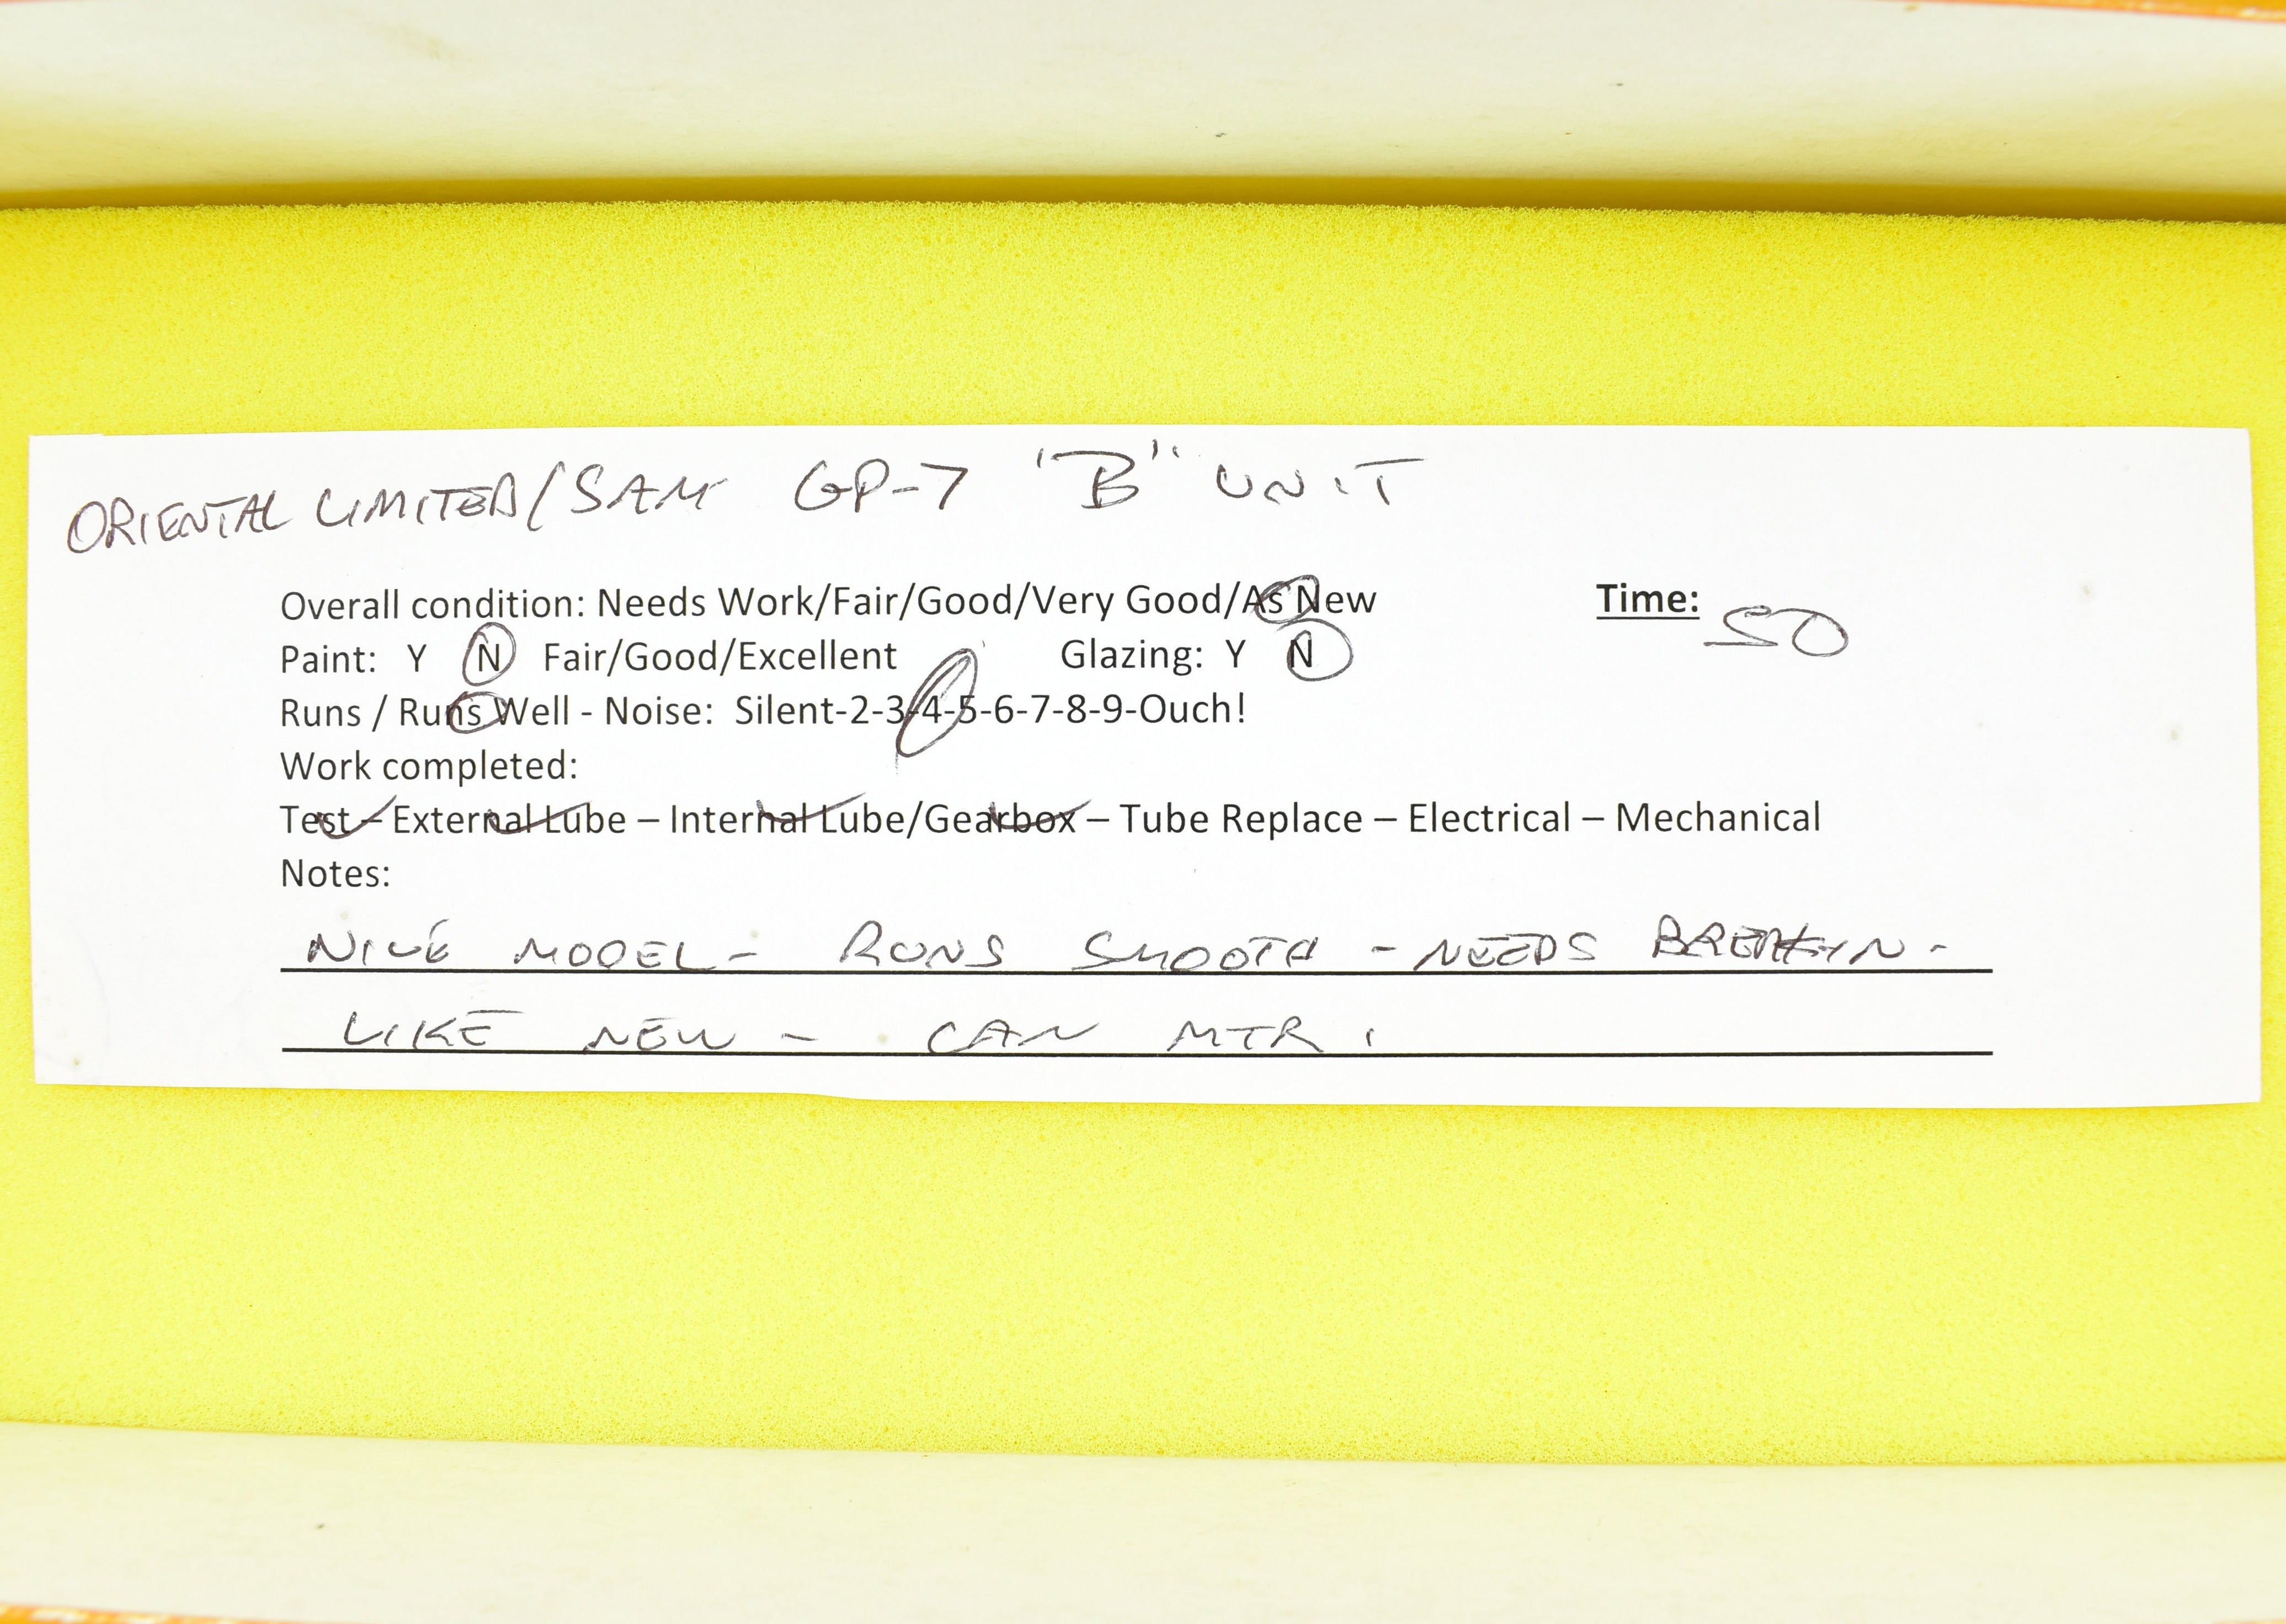 ORIENTAL LIMITED/SAM GP-7 "B" UNIT
Overall condition: Needs Work/Fair/Good/Very Good/As New Time: 50
Paint: Y N Fair/Good/Excellent Glazing: Y N
Runs / Runs Well - Noise: Silent-2-3-4-5-6-7-8-9-Ouch!
Work completed:
Test – External Lube – Internal Lube/Gearbox – Tube Replace – Electrical – Mechanical
Notes:
NICE MODEL - RUNS SMOOTH - NEEDS BREAKIN -
LIKE NEW - CAN MTR.